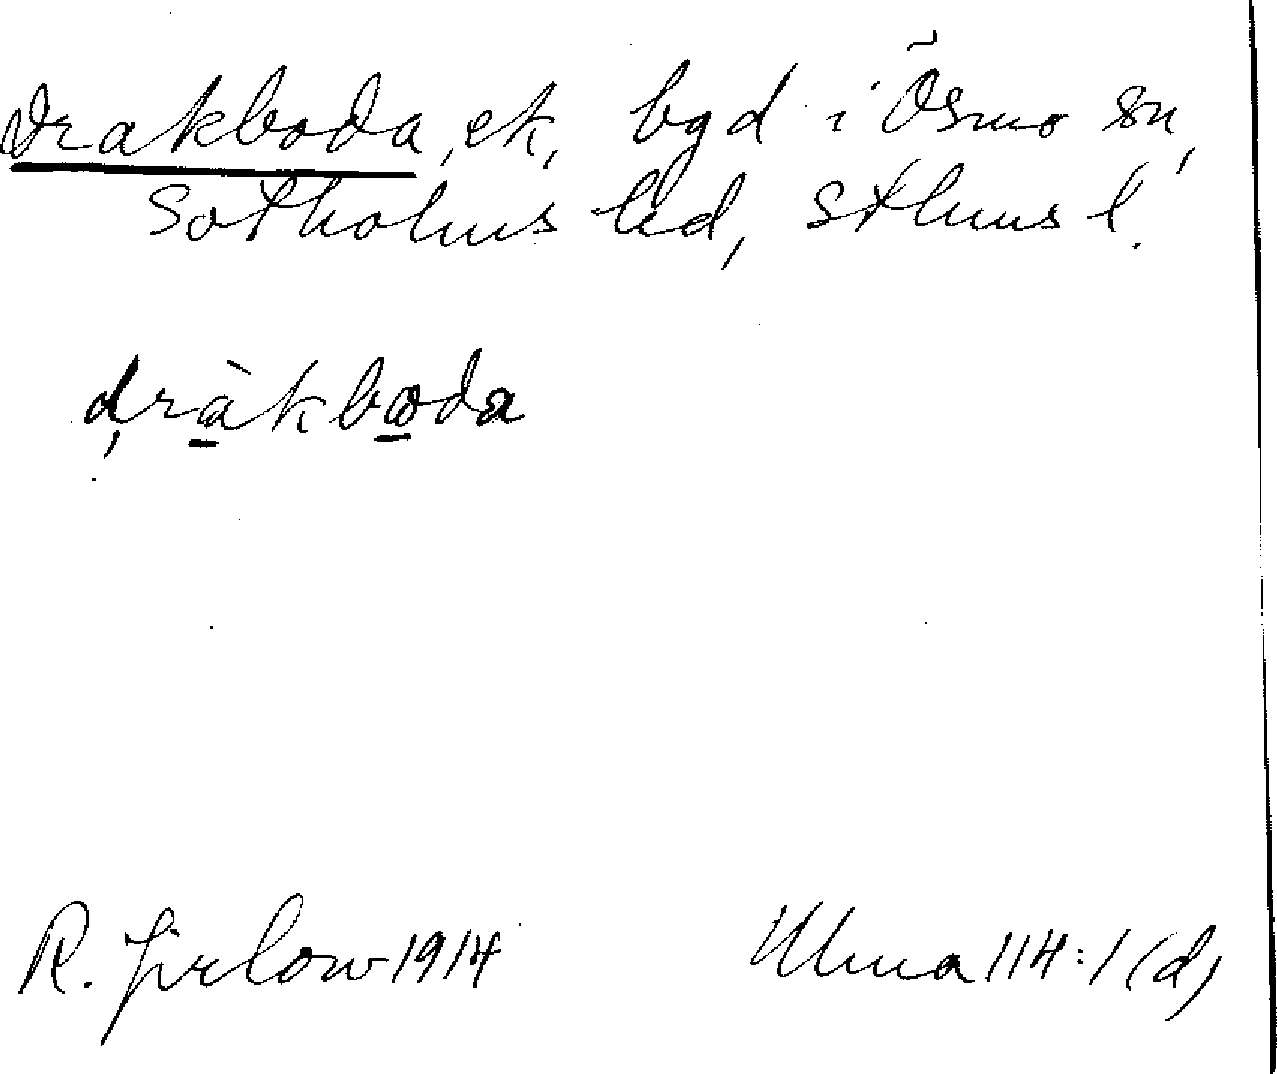 Drakboda, ek, bgd i Ösmo sn,
Sotholms hd, Sthms l.
dràkboda
R. Jirlow 1914 Ulma 114:1 (d)